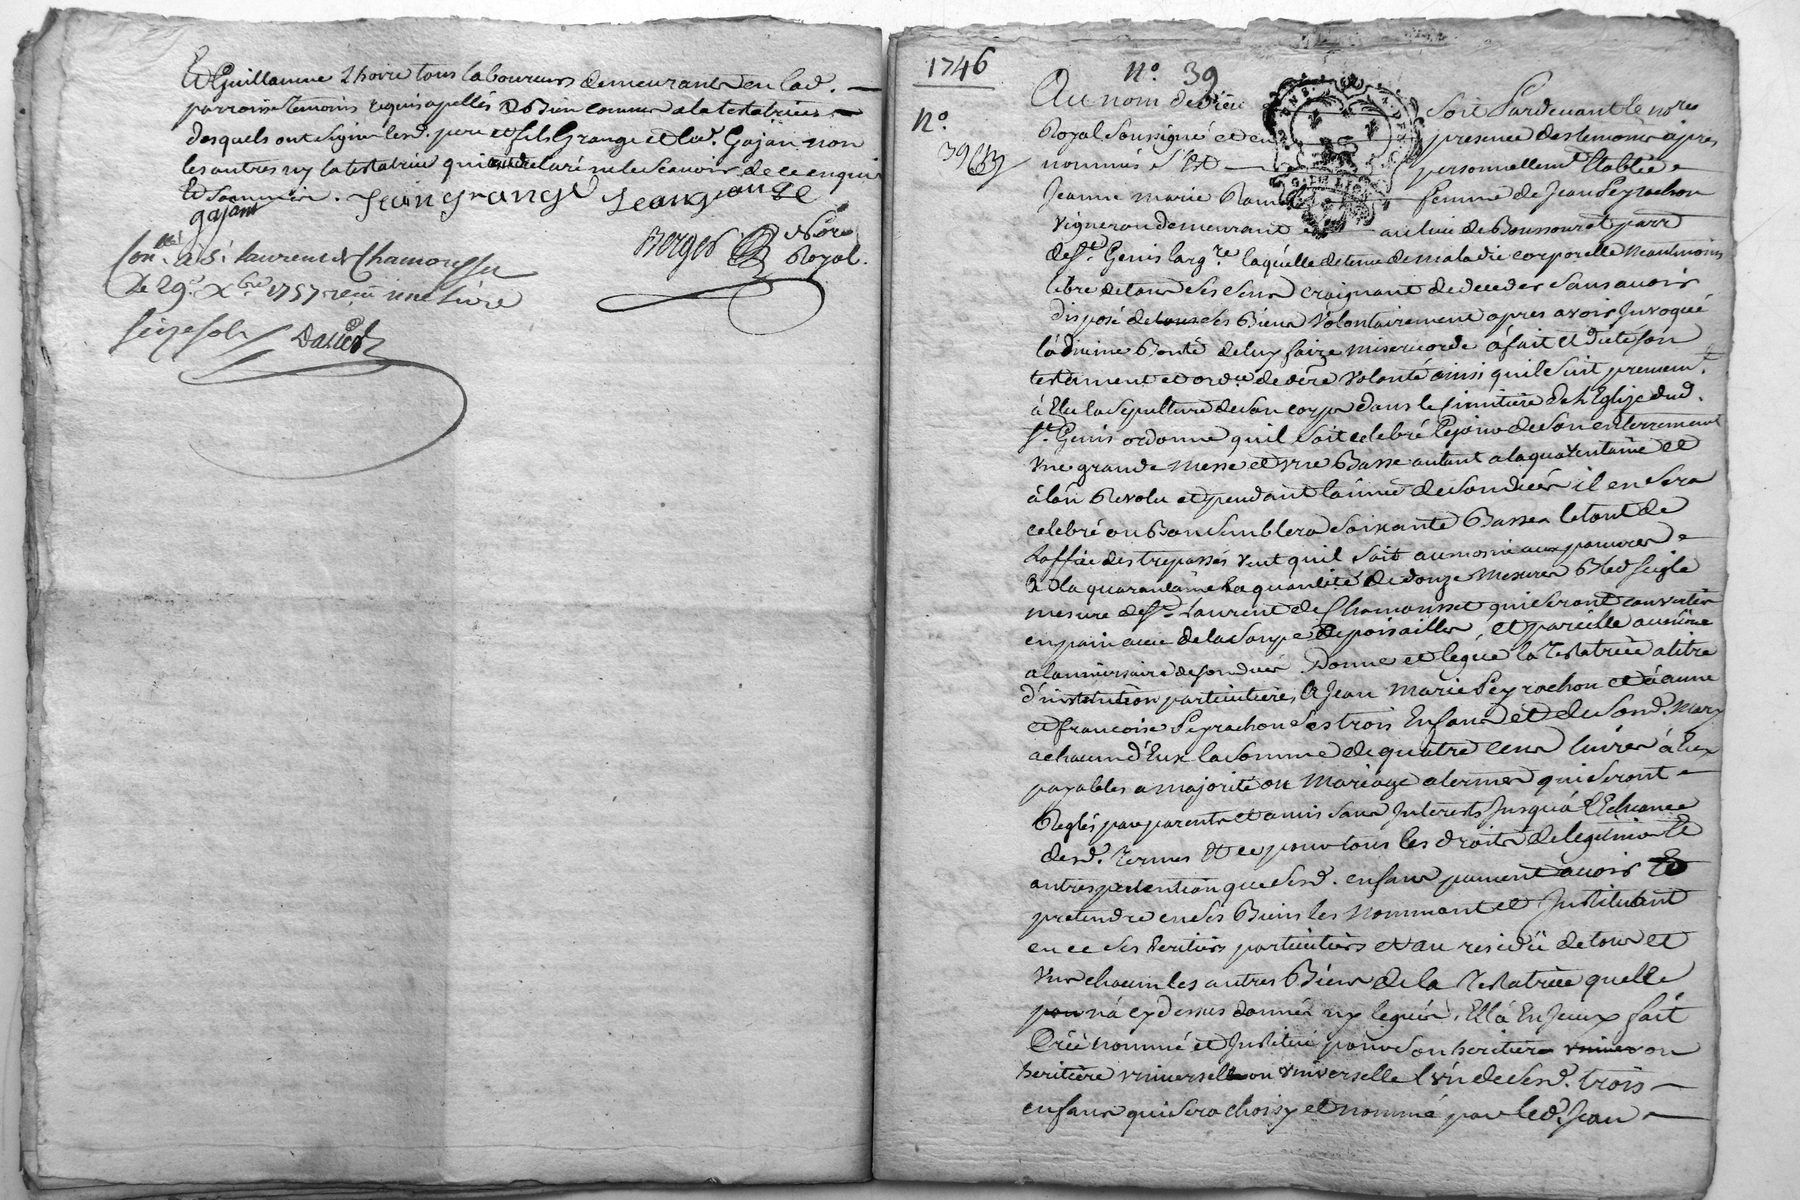 Et Guillaume Thoire tous laboureurs demeurants en lad.
parroisse temoins requis apellés et Bien connus a la testatrice
desquels ont signé lesd. pere et fils Grange et led. Gajan non
les autres ny la testatrice qui ont declaré ne le scavoir de ce enquis
et sommés. Jean grange Jean grange
gajant
Berger Nore Royal.
Con. a St. Laurent de Chamousset
Le 29e Xbre 1757 reçu une Livre
seize sols
1746
No. 39
No.
39
Au nom de dieu Soit Pardevant le nore
Royal soussigné et en presence des temoins apres
nommés s'est personnellement Etablie
Jeanne marie femme de Jean Peyrachon
vigneron demeurant au lieu de Boussoure parr.
de St. Genis largre laquelle detenue de maladie corporelle neantmoins
libre de tous ses sens craignant de deceder sans avoir
disposé de tous ses Biens volontairement apres avoir Invoqué
la divine Bonté de luy faire misericorde à fait et dicté son
testament et ordce. de dere volonté ainsi quil suit prememt.
à Elu la sepulture de son corps dans le simitière de l'Eglize dud.
St. Genis ordonne qu'il soit celebré le jour de son enterrement
une grande Messe et une Basse autant a la quarentaine et
à l'an Revolu et pendant l'année de son decés il en sera
celebré ou Bon semblera soixante Basses le tout de
l'office des trepassés veut quil soit aumosné aux pauvres
à la quarantaine la quantité de douze mesures Bled seigle
mesure de St. Laurent de Chamousset qui seront convertis
en pain avec de la soupe de poisailles, et pareille aumône
a l'anniversaire de son decés. Donne et legue la Testatrice a titre
d'institution particuliere, à Jean Marie Peyrachon
et françoise Peyrachon ses trois Enfans et de sond. Mary
a chacun d'Eux la somme de quatre cens livres à Eux
payables a majorité ou Mariage a termes qui seront
Reglés par parents et amis sans Interests Jusqu'à l'Echeance
desd. termes Et ce pour tous les droits de legitime et
autres pretention que sesd. enfans peuvent avoir Et
pretendre en ses Biens les Nommant et Instituant
en ce ses heritiers particuliers et au residu de tous et
uns chacun les autres Biens de la Testatrice quelle
n'a cy dessus donnés ny legués, Ella En Jceux fait
Créé nommé et Jnstitué pour son heritier ou
heritière universel ou universelle l'un de sesd. trois
enfans qui sera choisy et nommé par led. Jean